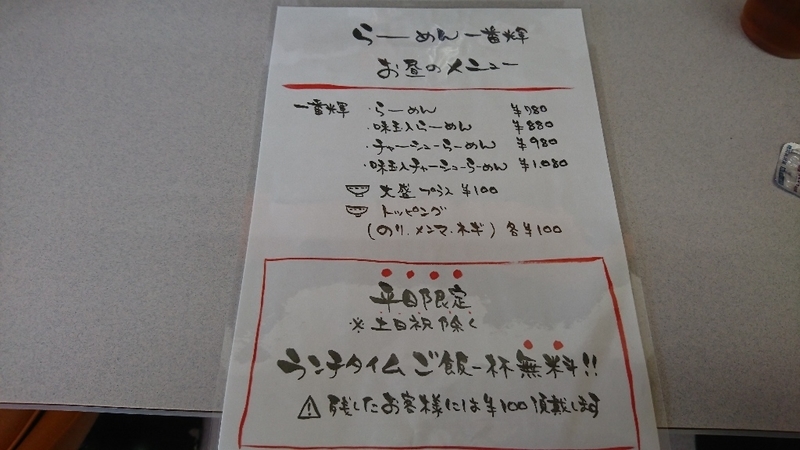 らーめん一番輝
お昼のメニュー
一番輝 ・らーめん ¥780
・味玉入らーめん ¥880
・チャーシューらーめん ¥980
・味玉入チャーシューらーめん ¥1,080
大盛プラス ¥100
トッピング
(のり.メンマ.ネギ) 各¥100
平日限定
※土日祝除く
ランチタイムご飯一杯無料!!
残したお客様には¥100頂戴します